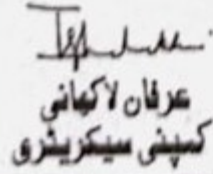 عرفان لاکھانی
کمپنی سیکریٹری